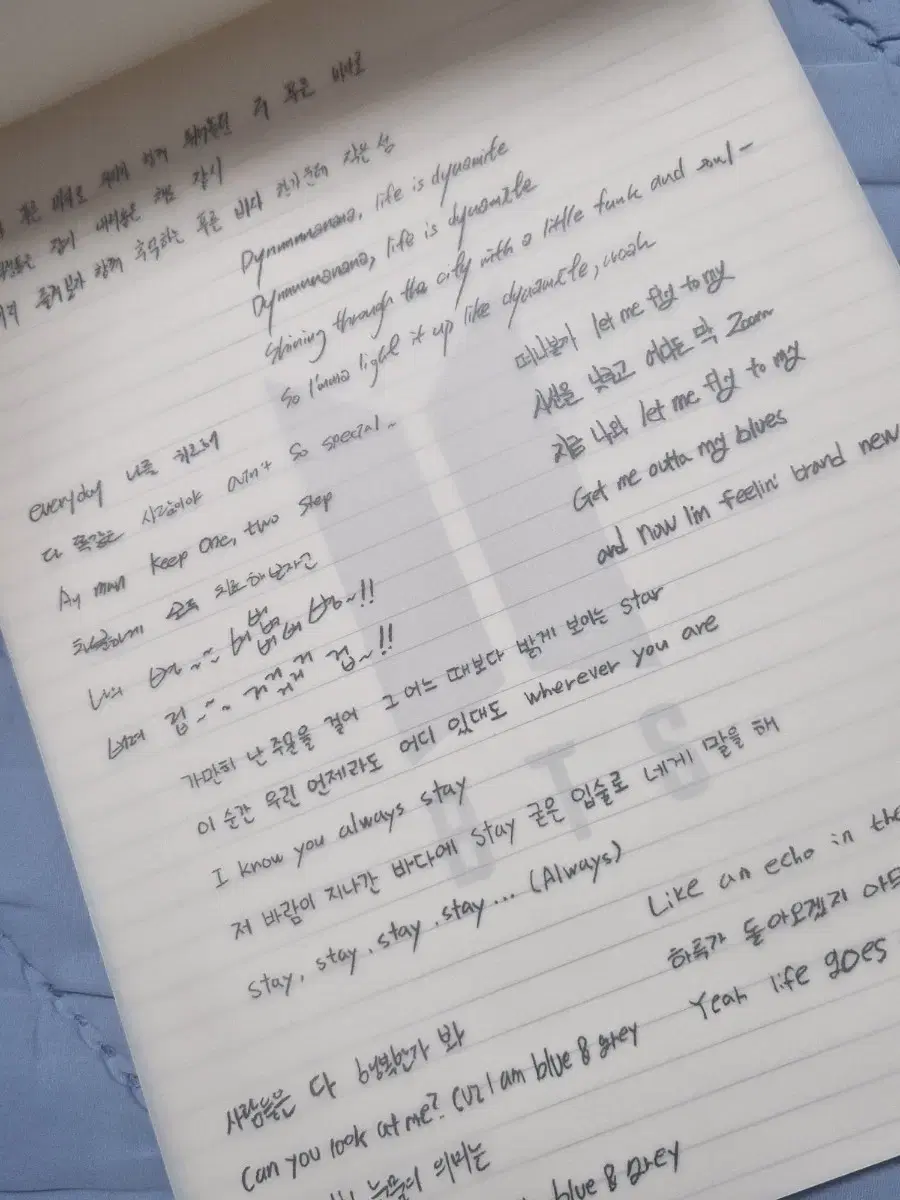 저 푸른 바다로
푸른 바다로
잠시
푸른 바다 한가운데 작은 섬
Dynnnnnanana, life is dynamite
Dynnnnnanana, life is dynamite
Shining through the city with a little funk and soul -
So I'mma light it up like dynamite, woah
떠나볼까 let me fly to my
시선을 낮추고 어디든 막 Zoom
지금 나와 let me fly to my
Get me outta my blues
and now I'm feelin' brand new
everyday 나를 위로해
다 똑같은 사람이야 ain't so special ~
Ay man keep one, two step
차분하게 모두 치료해보자고
나의
가만히 난 주문을 걸어 그 어느 때보다 밝게 보이는 star
이 순간 우린 언제라도 어디 있대도 wherever you are
I know you always stay
저 바람이 지나간 바다에 stay 굳은 입술로 네게 말을 해
stay, stay, stay, stay... (Always)
Like an echo in the
하루가 돌아오겠지 아무
Yeah life goes
사람들은 다 행복한가 봐
Can you look at me? Cuz I am blue & grey
눈물의 의미는
blue & grey
BTS